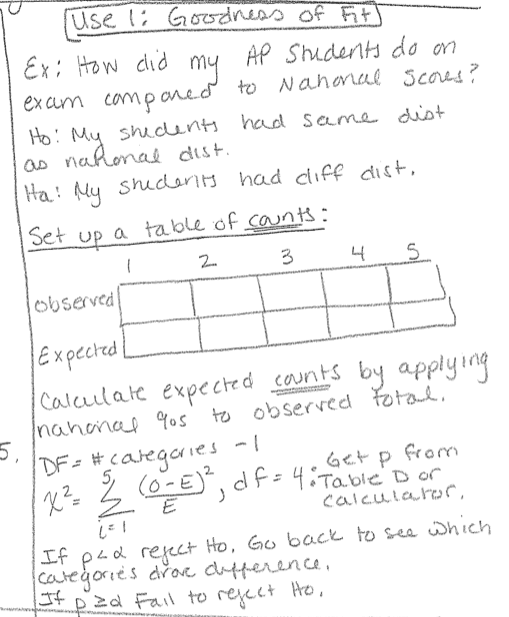 Use 1: Goodness of Fit
Ex: How did my AP Students do on
exam compared to National Scores?
Ho: My students had same dist
as national dist.
Ha: My students had diff dist.
Set up a table of counts:
1 2 3 4 5
Observed
Expected
Calculate expected counts by applying
national %s to observed total.
5.
DF = # categories - 1
χ² = 5 Σ i=1 (O-E)²/E, df = 4: Get p from
Table D or
calculator.
If p<α reject Ho. Go back to see which
categories drove difference.
If p≥α Fail to reject Ho.